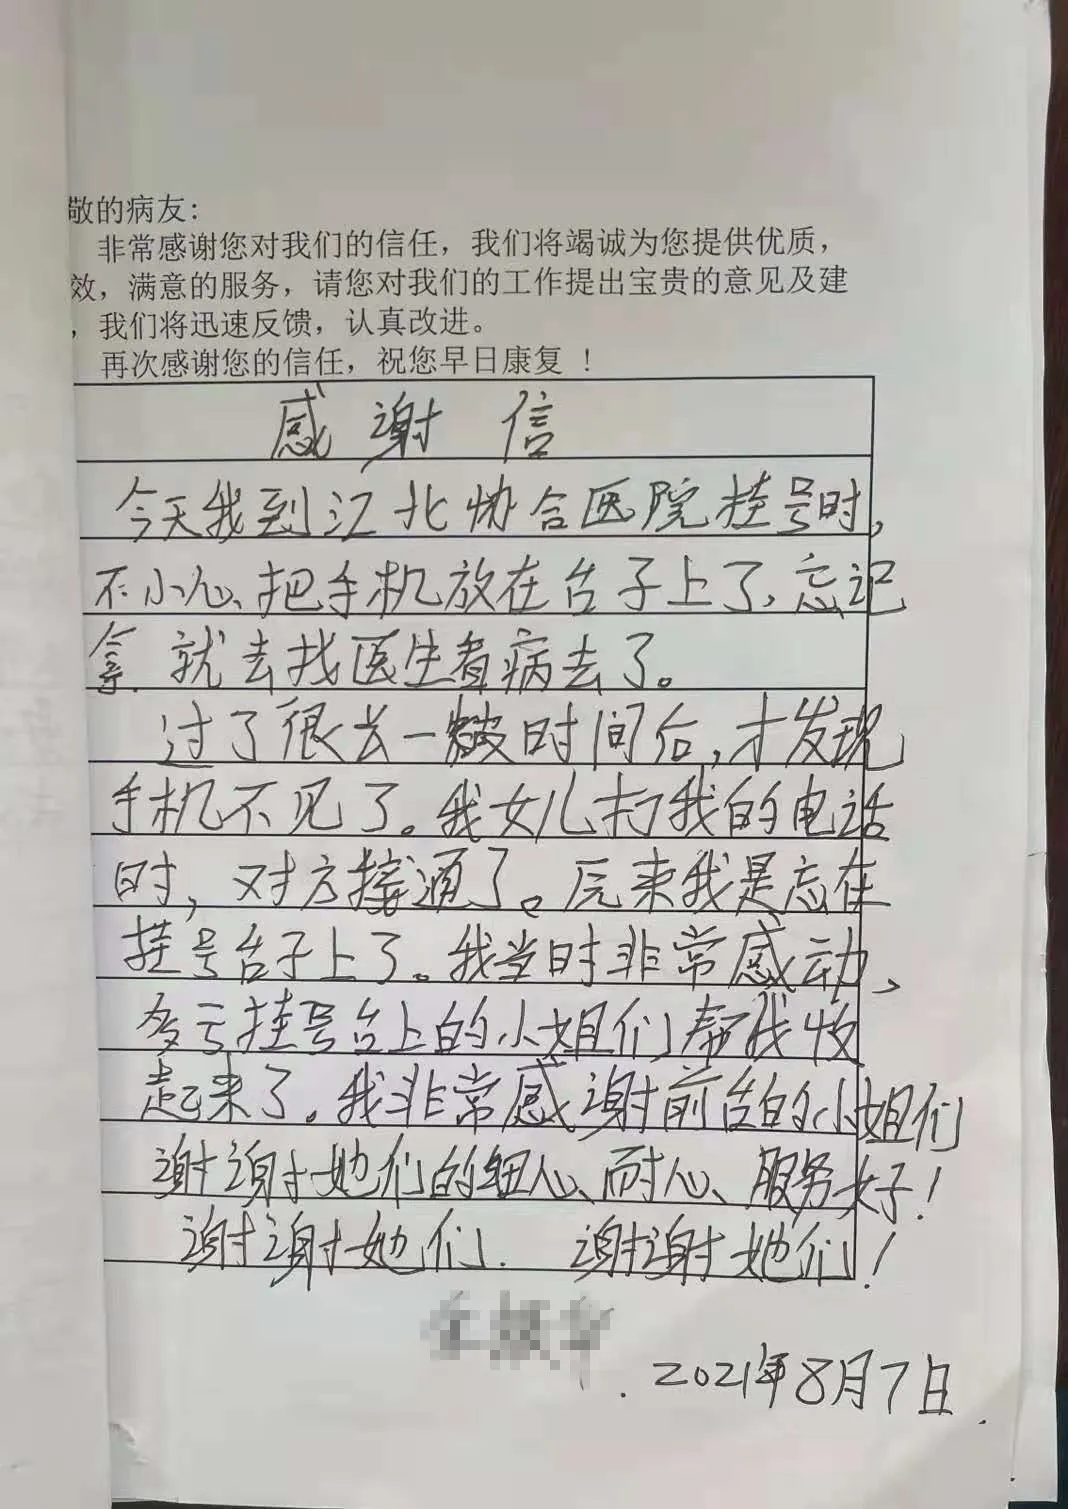 敬的病友:
非常感谢您对我们的信任，我们将竭诚为您提供优质，
效，满意的服务，请您对我们的工作提出宝贵的意见及建
，我们将迅速反馈，认真改进。
再次感谢您的信任，祝您早日康复！
感谢信
今天我到江北协合医院挂号时,
不小心、把手机放在台子上了、忘记
拿.就去找医生看病去了。
过了很长一段时间后,才发现
手机不见了。我女儿打我的电话
时,对方接通了。原来我是忘在
挂号台子上了。我当时非常感动、
多亏挂号台上的小姐们帮我收
起来了。我非常感谢前台的小姐们
谢谢她们的细心、耐心、服务好!
谢谢她们. 谢谢她们!
2021年8月7日.